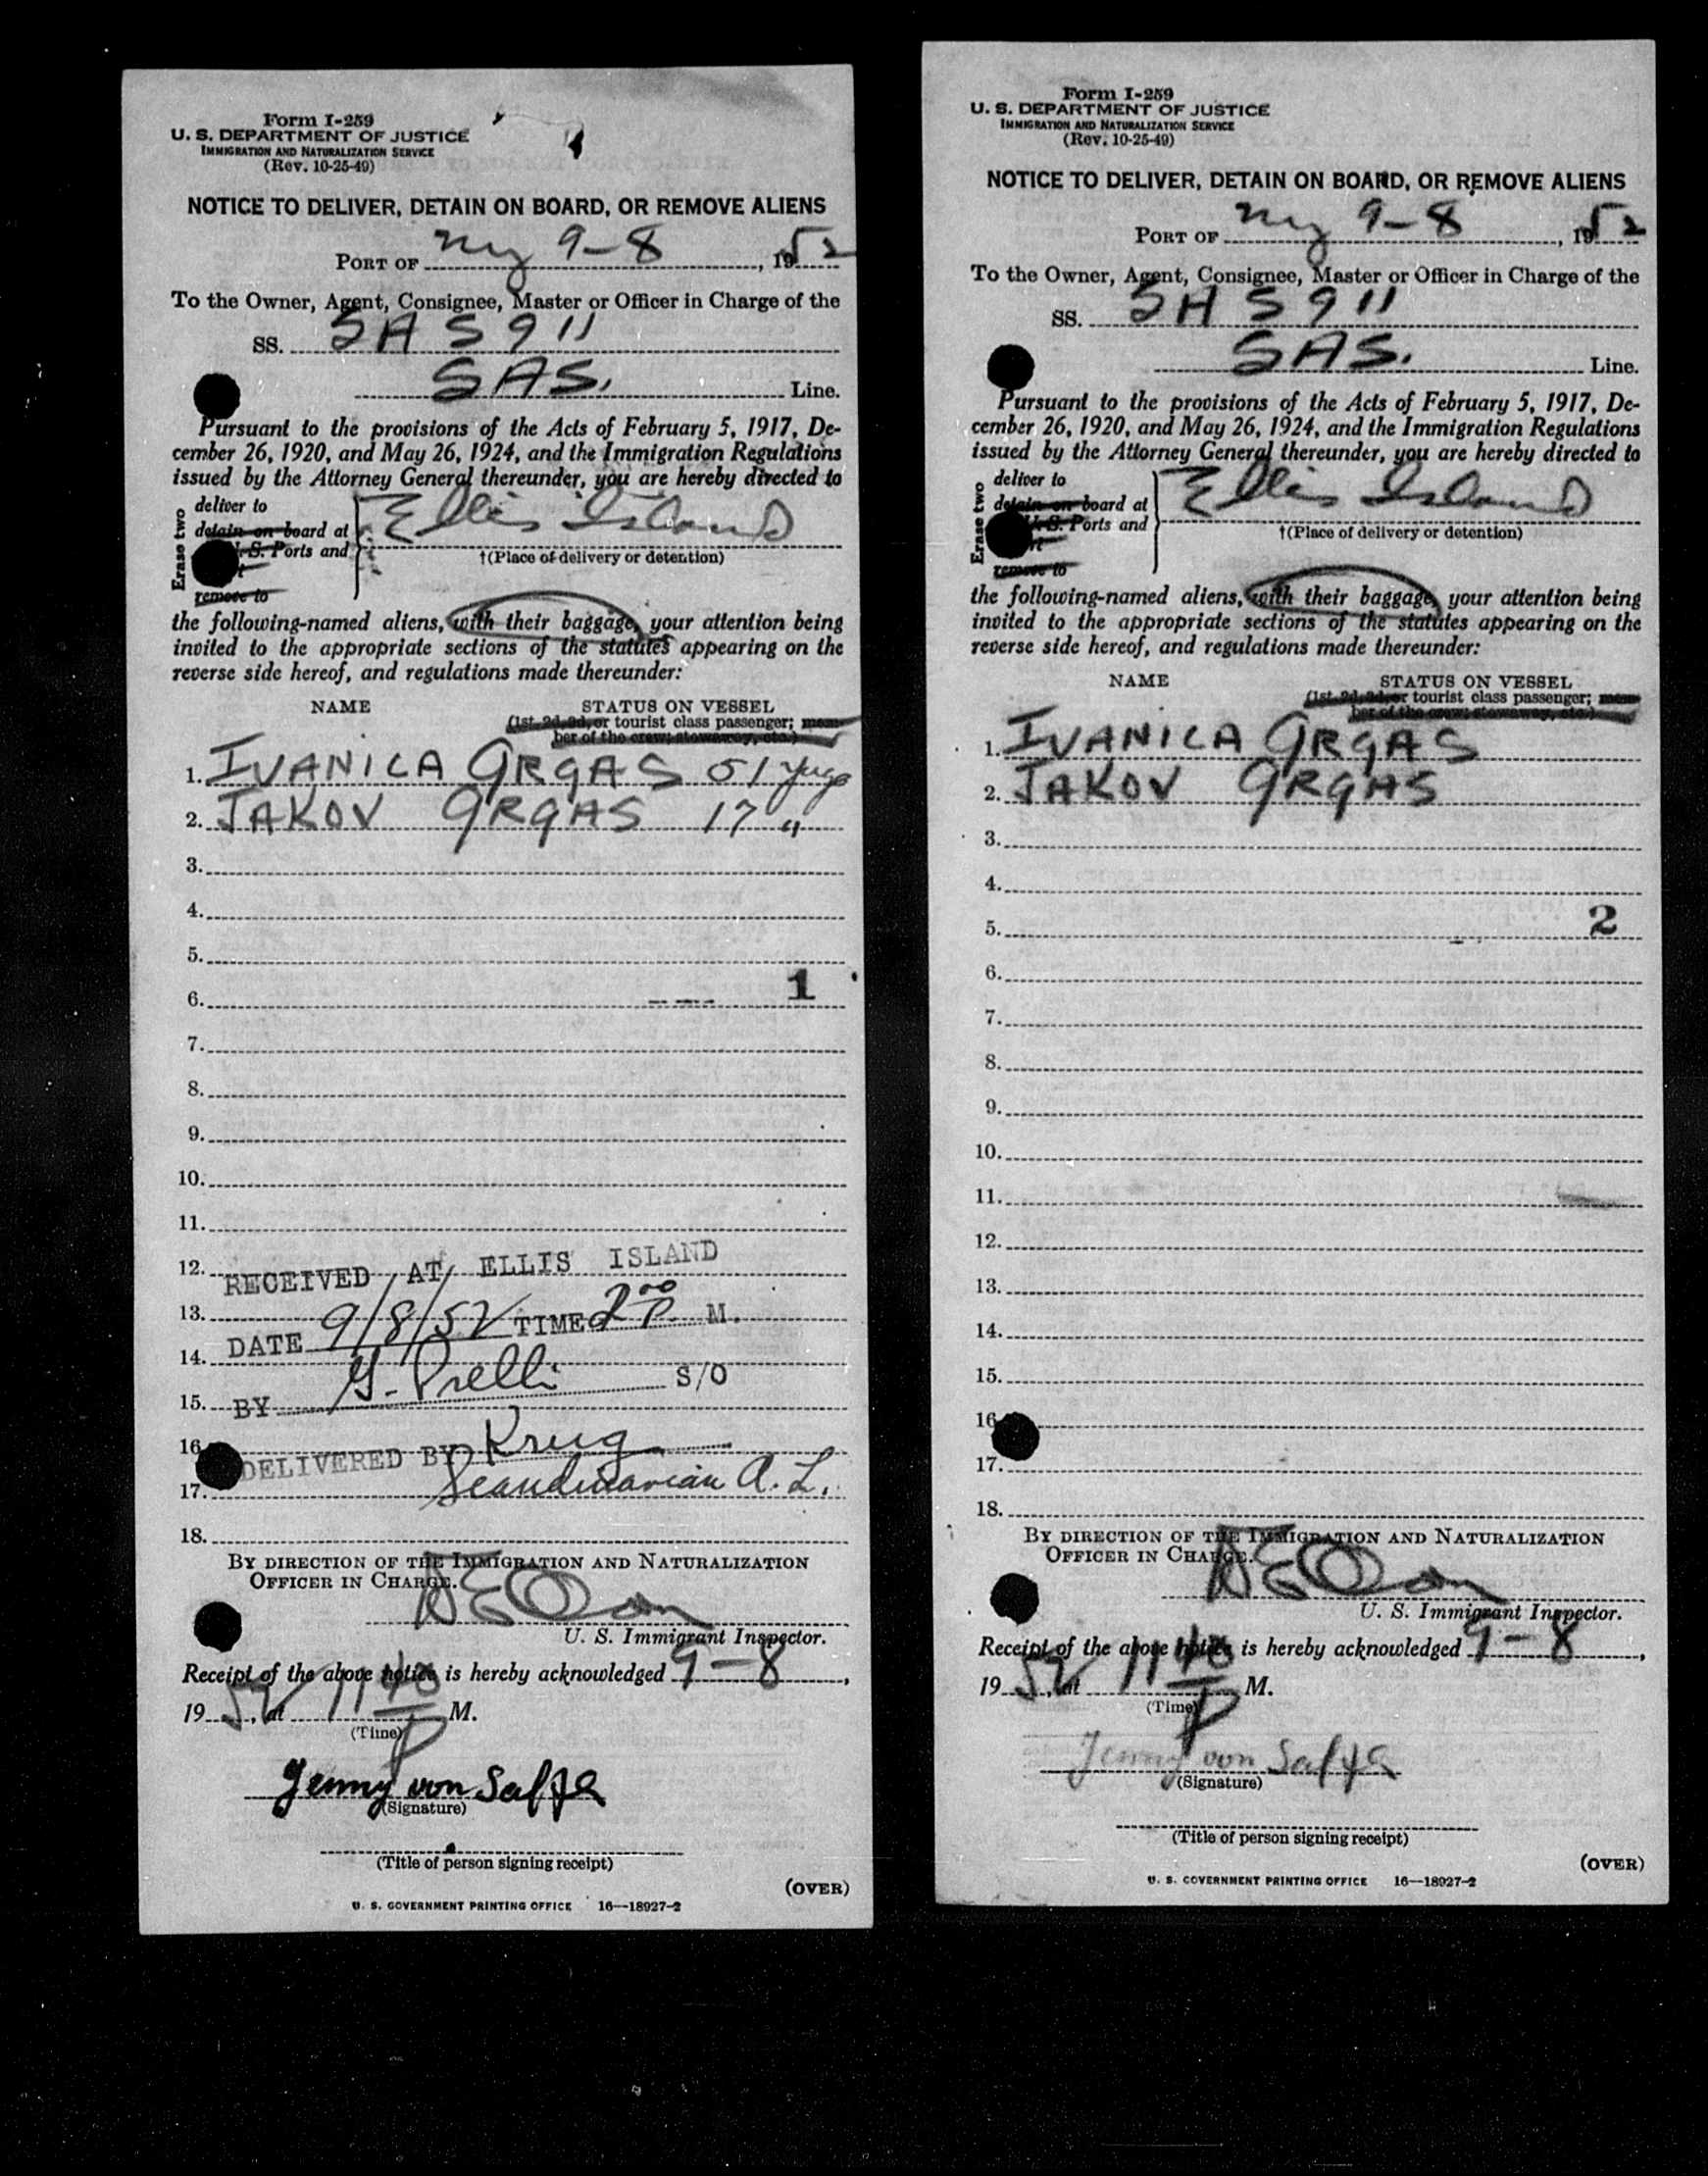 Form I-259
U. S. DEPARTMENT OF JUSTICE
IMMIGRATION AND NATURALIZATION SERVICE
(Rev. 10-25-49)
NOTICE TO DELIVER, DETAIN ON BOARD, OR REMOVE ALIENS
PORT OF ny 9-8, 1952
To the Owner, Agent, Consignee, Master or Officer in Charge of the
SS. SAS 911
SAS. Line.
Pursuant to the provisions of the Acts of February 5, 1917, De-
cember 26, 1920, and May 26, 1924, and the Immigration Regulations
issued by the Attorney General thereunder, you are hereby directed to
Erase two
deliver to
detain on board at Ellis Island
U. S. Ports and
†(Place of delivery or detention)
remove to
the following-named aliens, with their baggage, your attention being
invited to the appropriate sections of the statutes appearing on the
reverse side hereof, and regulations made thereunder:
NAME STATUS ON VESSEL
(1st, 2d, 3d, or tourist class passenger; mem-
ber of the crew; stowaway, etc.)
1. IVANICA GRGAS 51 Yugo
2. JAKOV GRGAS 17 "
3.
4.
5.
6. 1
7.
8.
9.
10.
11.
12. RECEIVED AT ELLIS ISLAND
13. DATE 9/8/52 TIME 2 00 P. M.
14.
15. BY G. Prelli S/O
16. DELIVERED BY Krug
17. Scandinavian A. L.
18.
BY DIRECTION OF THE IMMIGRATION AND NATURALIZATION
OFFICER IN CHARGE.
U. S. Immigrant Inspector.
Receipt of the above notice is hereby acknowledged 9-8,
1952, at 11 40 P M.
(Time)
Jenny von Salza
(Signature)
(Title of person signing receipt)
(OVER)
U. S. GOVERNMENT PRINTING OFFICE 16—18927-2
Form I-259
U. S. DEPARTMENT OF JUSTICE
IMMIGRATION AND NATURALIZATION SERVICE
(Rev. 10-25-49)
NOTICE TO DELIVER, DETAIN ON BOARD, OR REMOVE ALIENS
PORT OF ny 9-8, 1952
To the Owner, Agent, Consignee, Master or Officer in Charge of the
SS. SAS 911
SAS. Line.
Pursuant to the provisions of the Acts of February 5, 1917, De-
cember 26, 1920, and May 26, 1924, and the Immigration Regulations
issued by the Attorney General thereunder, you are hereby directed to
Erase two
deliver to
detain on board at Ellis Island
U. S. Ports and
†(Place of delivery or detention)
remove to
the following-named aliens, with their baggage, your attention being
invited to the appropriate sections of the statutes appearing on the
reverse side hereof, and regulations made thereunder:
NAME STATUS ON VESSEL
(1st, 2d, 3d, or tourist class passenger; mem-
ber of the crew; stowaway, etc.)
1. IVANICA GRGAS
2. JAKOV GRGAS
3.
4.
5. 2
6.
7.
8.
9.
10.
11.
12.
13.
14.
15.
16.
17.
18.
BY DIRECTION OF THE IMMIGRATION AND NATURALIZATION
OFFICER IN CHARGE.
U. S. Immigrant Inspector.
Receipt of the above notice is hereby acknowledged 9-8,
1952, at 11 40 P M.
(Time)
Jenny von Salza
(Signature)
(Title of person signing receipt)
(OVER)
U. S. GOVERNMENT PRINTING OFFICE 16—18927-2